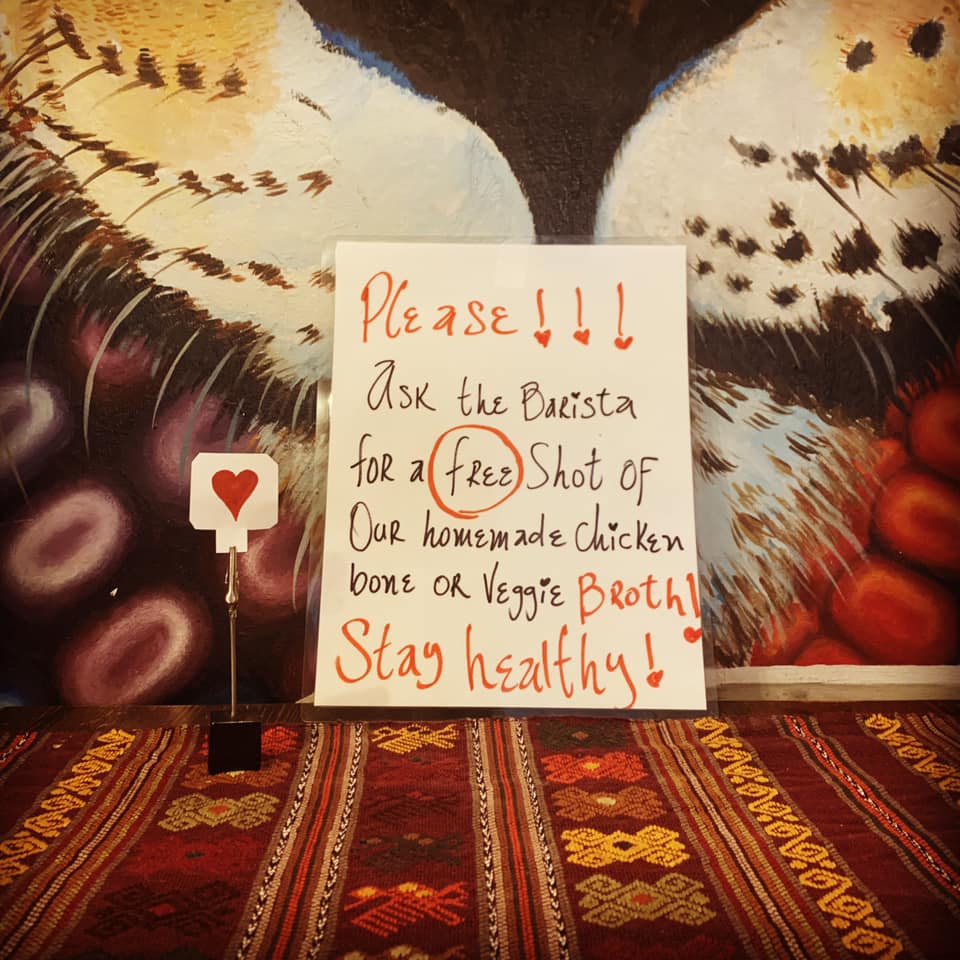 Please!!!
Ask the Barista
for a free Shot of
Our homemade Chicken
bone or Veggie Broth!
Stay healthy!